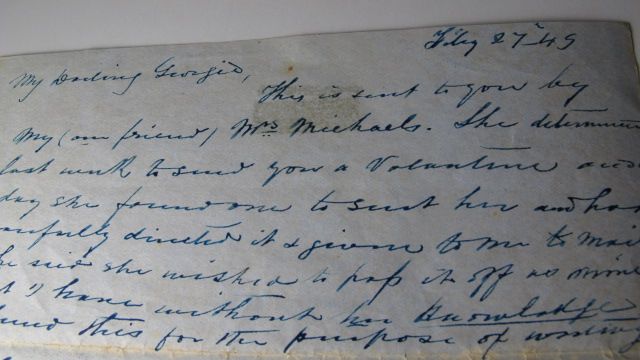 Feby 27-49
My Darling Georgie,
This is sent to you by
my (our friend) Mrs Michaels. She determined
last week to send you a Valantine and
day she found one to suit her and has
carefully directed it & given to me to mail
he said she wished to pass it off as mine
I have without her knowledge
this for the purpose of writing